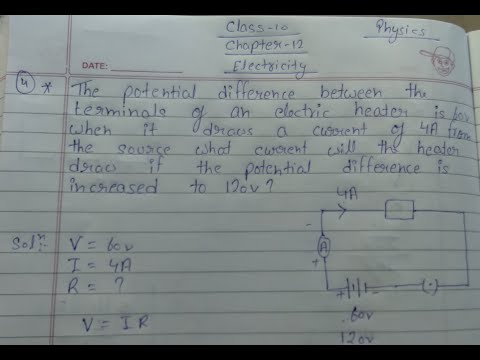 Class-10
Physics
Chapter-12
DATE:
Electricity
(4) * The potential difference between the
terminals of an electric heater is 60v
when it draws a current of 4A from
the source what current will the heater
draw if the potential difference is
increased to 120v?
4A
Solⁿ: V = 60v
I = 4A
R = ?
V = IR
- A +
+ -
(.)
60v
120v